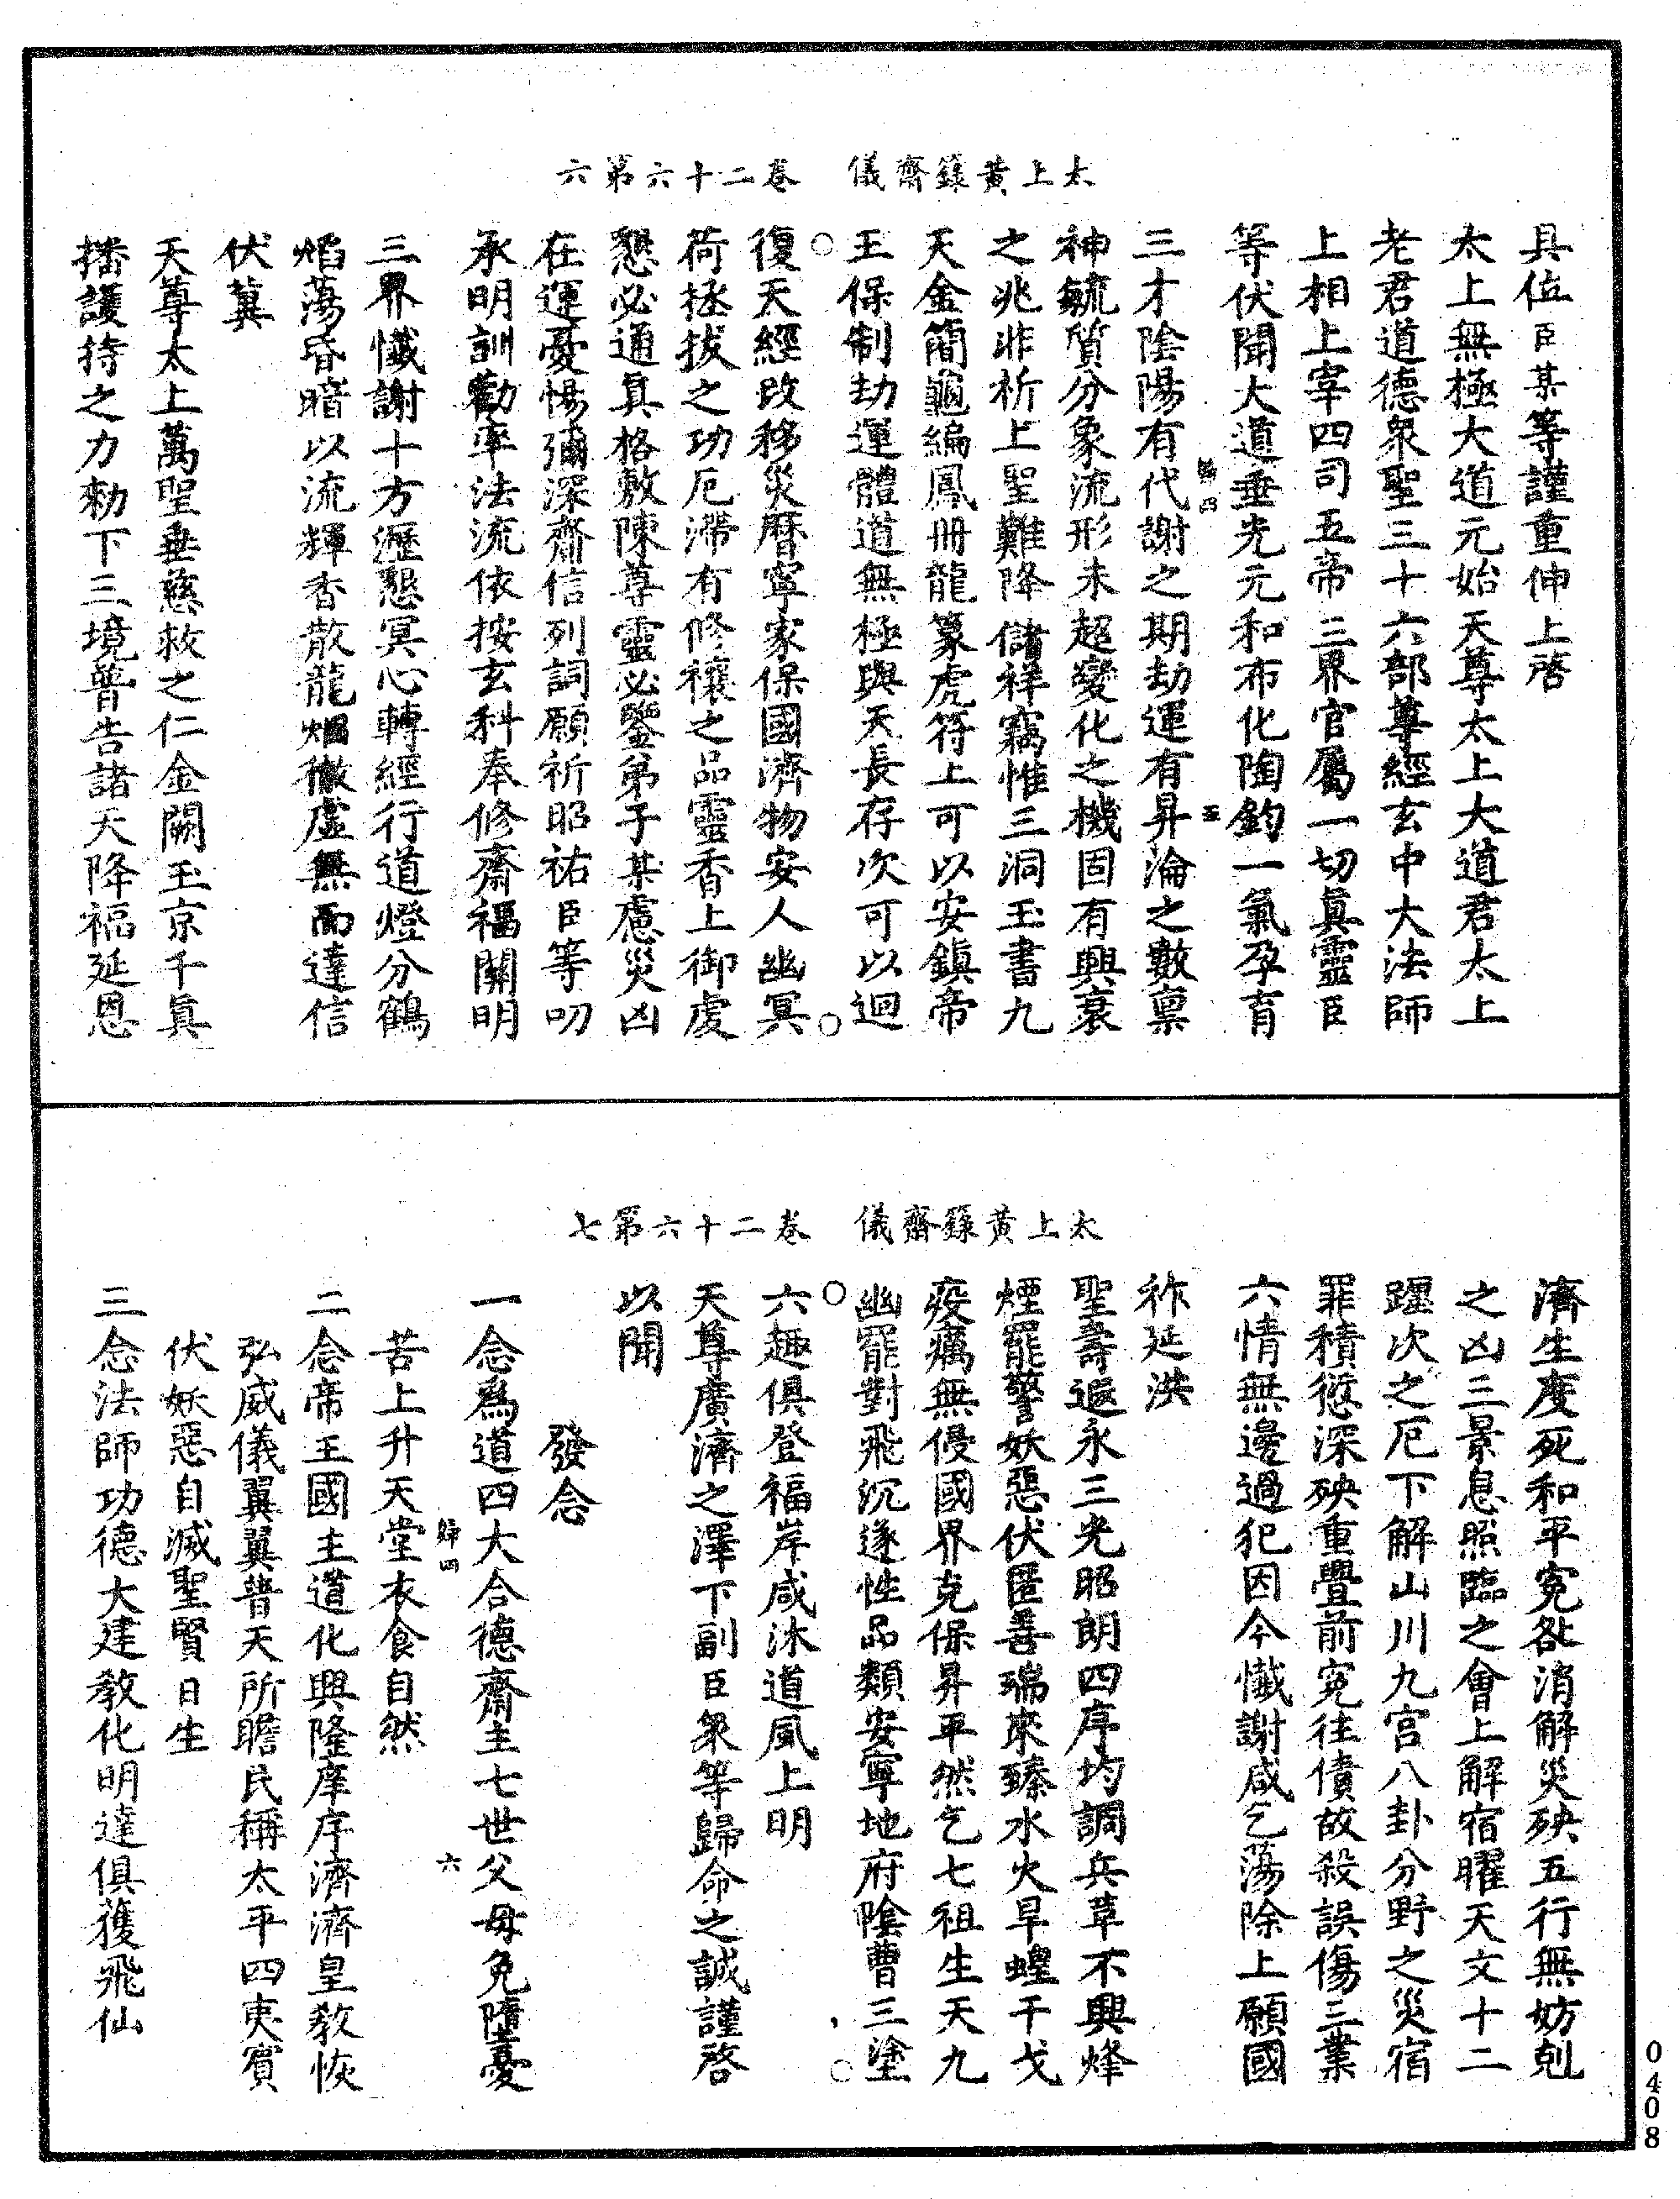 太上黃籙齋儀　卷二十六第六
具位臣某等謹重伸上啓
太上無極大道元始天尊太上大道君太上
老君道德衆聖三十六部尊經玄中大法師
上相上宰四司五帝三界官屬一切眞靈臣
等伏聞大道垂光元和布化陶鈞一氣孕育
歸四　五
三才陰陽有代謝之期劫運有昇淪之數稟
神毓質分象流形未超變化之機固有興衰
之兆非祈上聖難降儲祥竊惟三洞玉書九
天金簡龜編鳳冊龍篆虎符上可以安鎮帝
王保制劫運體道無極與天長存次可以迴
復天經改移災曆寧家保國濟物安人幽冥
荷拯拔之功厄滯有修禳之品靈香上御虔
懇必通真格敷陳尊靈必鑒弟子某慮災凶
在運憂惕彌深齋信列詞願祈昭祐臣等叨
承明訓勸率法流依按玄科奉修齋福關明
三界懺謝十方瀝懇冥心轉經行道燈分鶴
焰蕩昏暗以流輝香散龍煙徹虛無而達信
伏冀
天尊太上萬聖垂慈救之仁金闕玉京千眞
播護持之力勑下三境普告諸天降福延恩
太上黃籙齋儀　卷二十六第七
濟生度死和平寃咎消解災殃五行無妨剋
之凶三景息照臨之會上解宿曜天文十二
躔次之厄下解山川九宮八卦分野之災宿
罪積愆深殃重舋前寃往債故殺誤傷三業
六情無邊過犯因今懺謝咸乞蕩除上願國
祚延洪
聖壽遐永三光昭朗四序均調兵革不興烽
煙罷警妖惡伏匿善瑞來臻水火旱蝗干戈
疫癘無侵國界克保昇平然乞七祖生天九
幽罷對飛沉遂性品類安寧地府陰曹三塗
六趣俱登福岸咸沐道風上明
天尊廣濟之澤下副臣衆等歸命之誠謹啓
以聞
發念
一念爲道四大合德齋主七世父母免墮憂
歸四　六
苦上升天堂衣食自然
二念帝王國主道化興隆庠序濟濟皇教恢
弘威儀翼翼普天所瞻民稱太平四夷賓
伏妖惡自滅聖賢日生
三念法師功德大建教化明達俱獲飛仙
0408